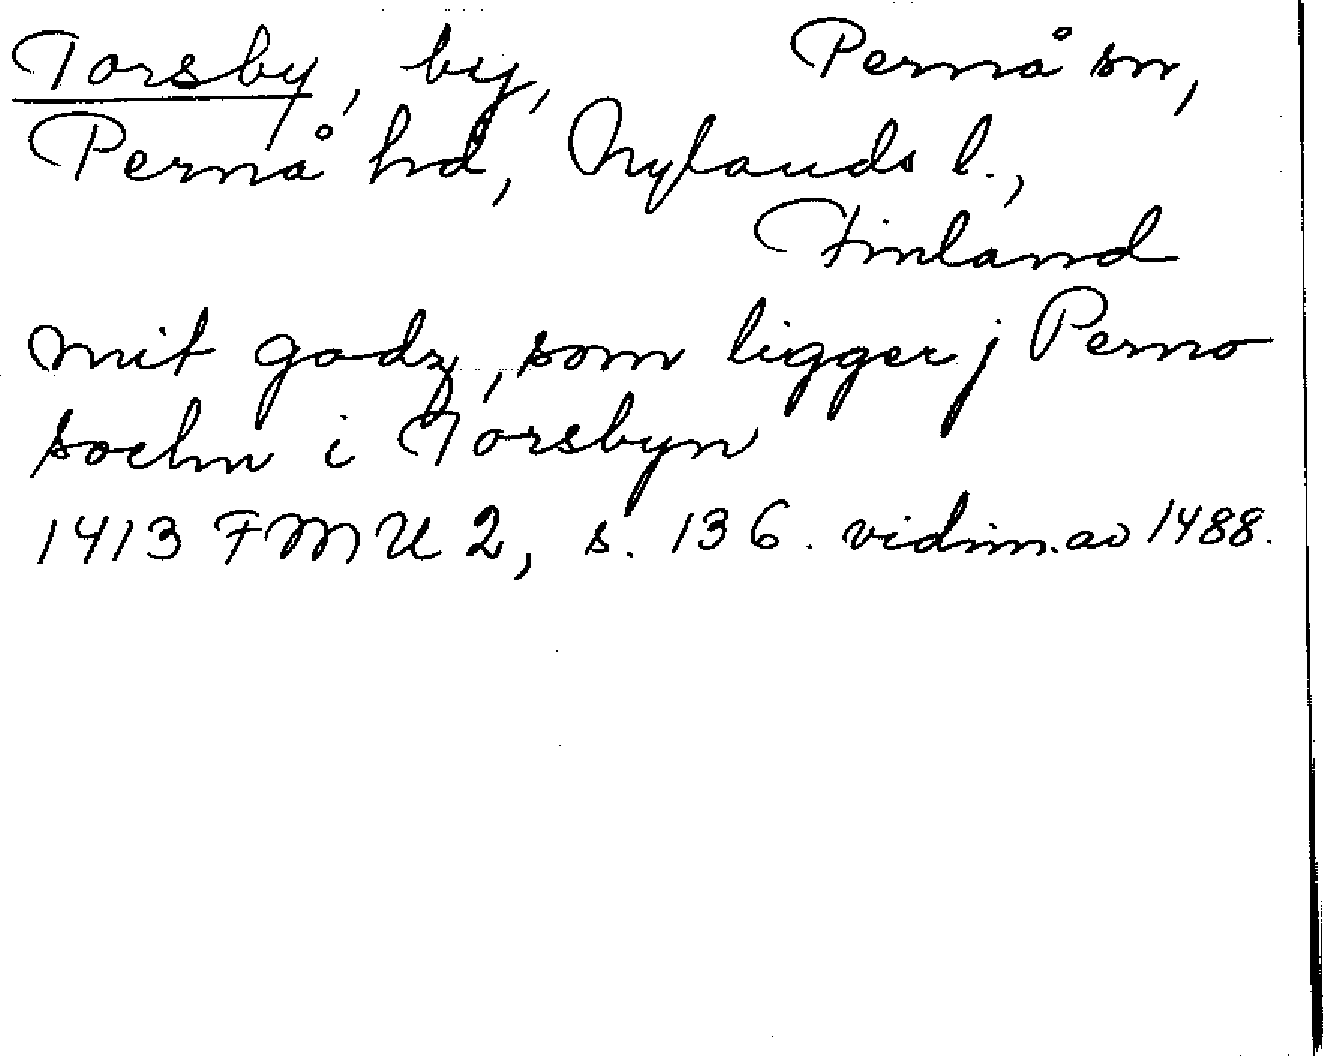 Torsby, by, Pernå sn,
Pernå hd, Nylands l.,
Finland
mit godz, som ligger j Perno
sochn i Torsbyn
1413 FMU 2, s. 136. vidim. av 1488.